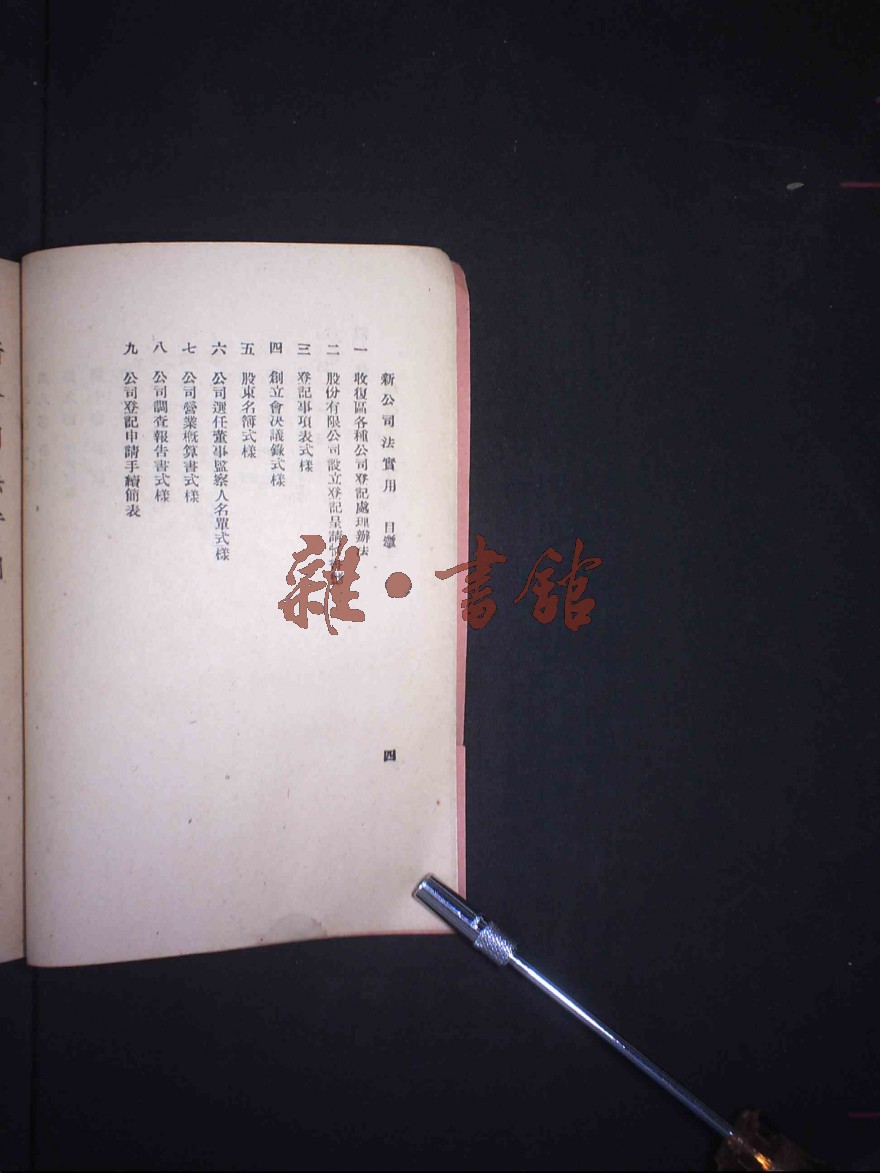 新公司法實用 目錄
一 收復區各種公司登記處理辦法
二 股份有限公司設立登記呈請
三 登記事項表式樣
四 創立會決議錄式樣
五 股東名簿式樣
六 公司選任董事監察人名單式樣
七 公司營業概算書式樣
八 公司調查報告書式樣
九 公司登記申請手續簡表
四
雜·書館